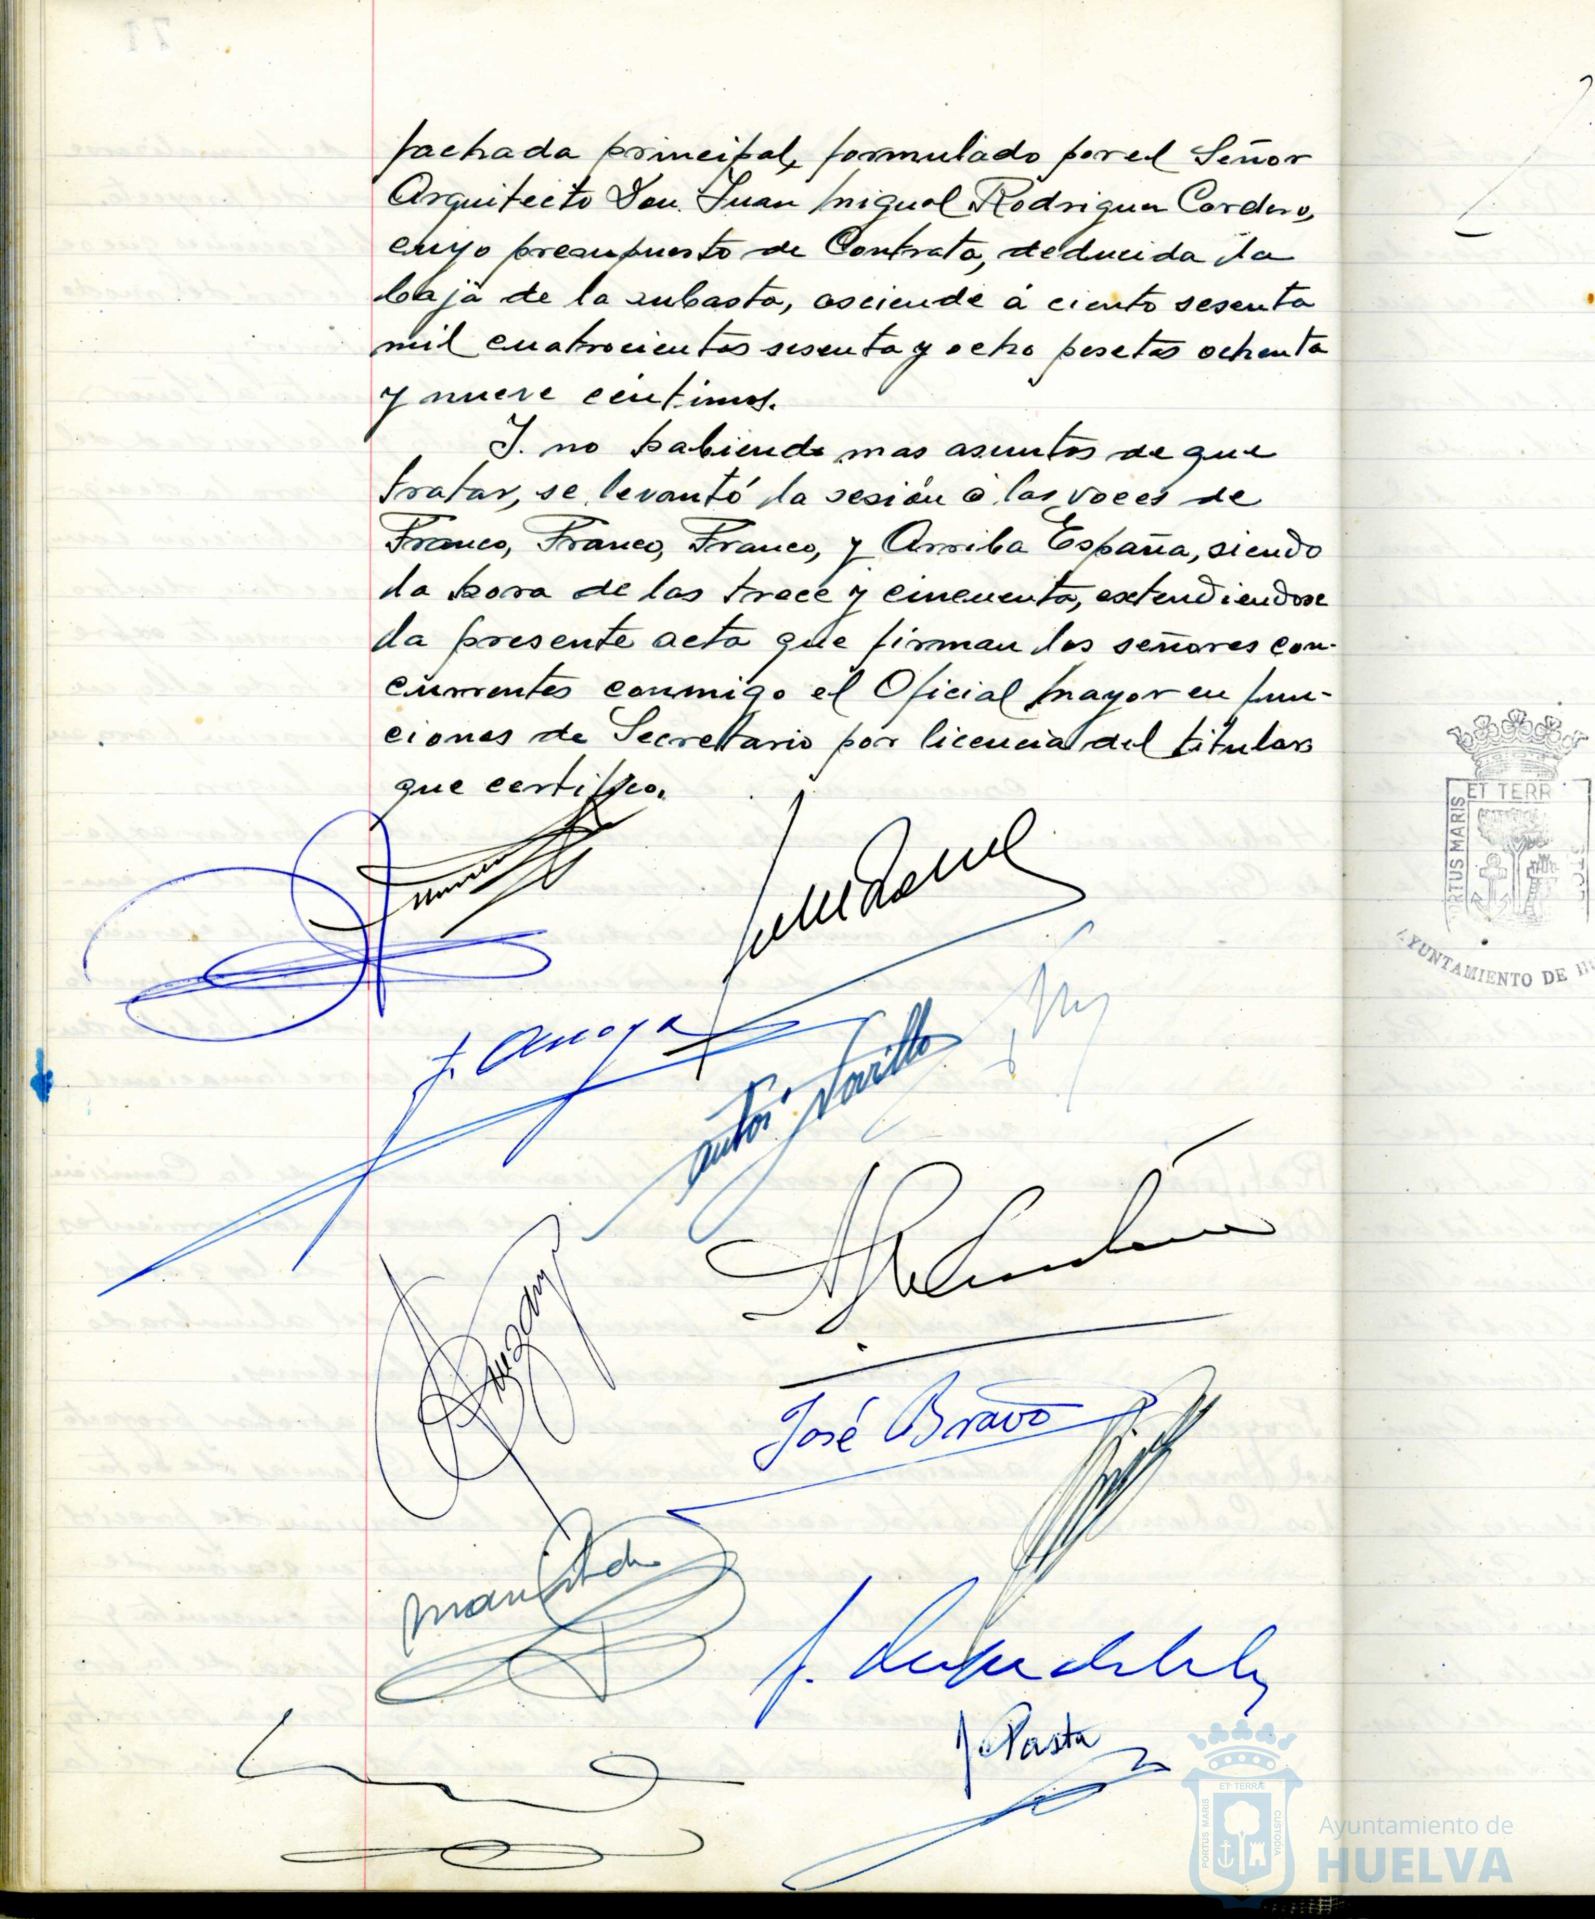 fachada principal, formulado por el Señor
Arquitecto Don Juan Miguel Rodriguez Cordero,
cuyo presupuesto de Contrata, deducida la
baja de la subasta, asciende á ciento sesenta
mil cuatrocientas sesenta y ocho pesetas ochenta
y nueve céntimos.
Y. no habiendo mas asuntos de que
tratar, se levantó la sesión á las voces de
Franco, Franco, Franco, y Arriba España, siendo
la hora de las trece y cincuenta, extendiendose
la presente acta que firman los señores con-
currentes conmigo el Oficial Mayor en fun-
ciones de Secretario por licencia del titular
que certifico.
José Bravo
ET TERR
PORTUS MARIS
AYUNTAMIENTO DE
ET TERRÆ
PORTUS MARIS
CUSTODIA
Ayuntamiento de
HUELVA